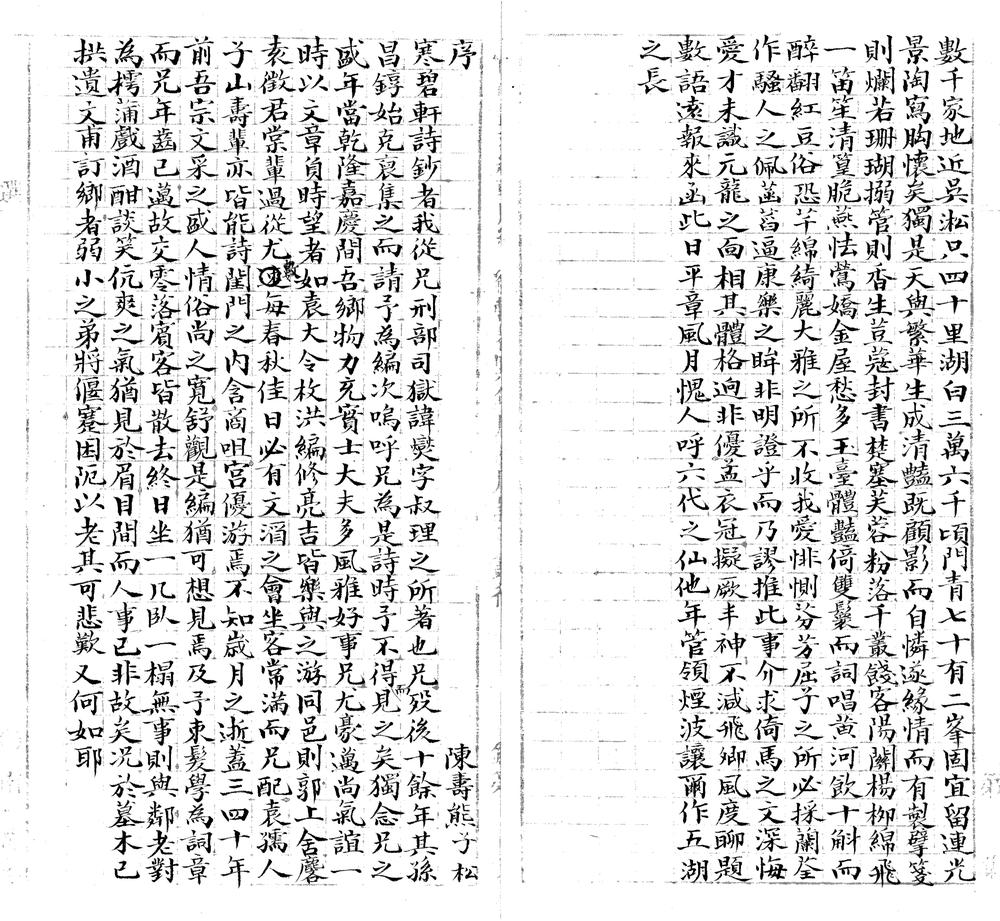 數千家地近吳淞只四十里湖白三萬六千頃門青七十有二峯固宜留連光
景陶寫胸懷矣獨是天與繁華生成清豔既顧影而自憐遂緣情而有製擘箋
則爛若珊瑚搦管則香生荳蔻封書楚塞芙蓉粉落千叢餞客陽關楊柳綿飛
一笛笙清篁脆燕怯鶯嬌金屋愁多玉臺體豔倚雙鬟而詞唱黃河飲十斛而
醉翻紅豆俗恐芊綿綺麗大雅之所不收我愛悱惻芬芳屈子之所必採蘭荃
作騷人之佩菡萏逼康樂之眸非明證乎而乃謬推此事介求倚馬之文深悔
愛才未識元龍之面相其體格迥非優孟衣冠擬厥丰神不減飛卿風度聊題
數語遠報來函此日平章風月愧人呼六代之仙他年管領煙波讓爾作五湖
之長
序 陳壽熊子松
寒碧軒詩鈔者我從兄刑部司獄諱爕字叔理之所著也兄歿後十餘年其孫
昌錞始克裒集之而請予為編次嗚呼兄為是詩時予不得而見之矣獨念兄之
盛年當乾隆嘉慶間吾鄉物力充實士大夫多風雅好事兄尤豪邁尚氣誼一
時以文章負時望者如袁大令枚洪編修亮吉皆樂與之游同邑則郭上舍麐
袁徵君棠輩過從尤數每春秋佳日必有文酒之會坐客常滿而兄配袁孺人
子山壽輩亦皆能詩閨門之內含商咀宮優游焉不知歲月之逝蓋三四十年
前吾宗文采之盛人情俗尚之寬舒觀是編猶可想見焉及予束髮學為詞章
而兄年齒已邁故交零落賓客皆散去終日坐一几臥一榻無事則與鄰老對
為樗蒲戲酒酣談笑伉爽之氣猶見於眉目間而人事已非故矣况於墓木已
拱遺文甫訂鄉者弱小之弟將偃蹇困阨以老其可悲歎又何如耶